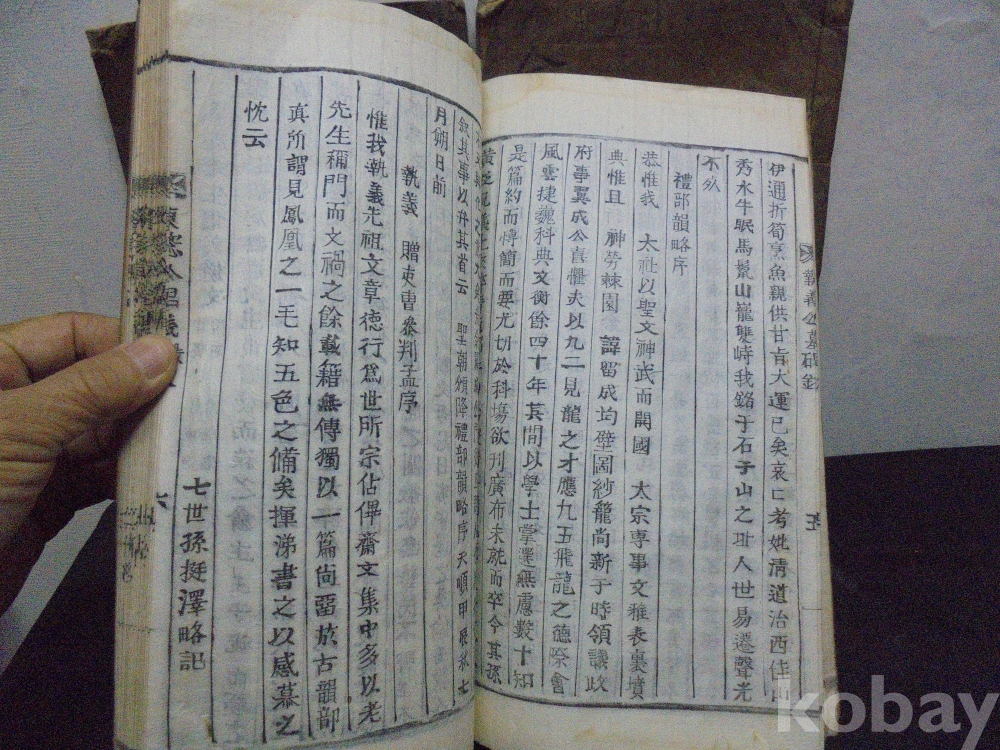 伊通折筍烹魚親供甘旨大運已矣哀亡考妣淸道治西佳山
秀水牛眠馬鬣山巃雙峙我銘于石于山之卄人世易遷聲光
不
禮部韻略序
恭惟我 太祖以聖文神武而開國 太宗専事文雅表裏墳
典惟且 神勞棘園 諱留成均壁圖紗籠尚新于時領議政
府事翼成公喜惟夫以九二見龍之才應九五飛龍之德際會
風雲捷巍科典文衡餘四十年其間以學士掌選無慮數十知
是篇約而慱簡而要尤切於科塲欲刊廣布未就而卒今其孫
其事以弁其首云 聖朝頒降禮部韻略序天順甲 七
月朔日前
執義 贈吏曹叅判孟序
惟我執義先祖文章德行爲世所宗佔俾齋文集中多以老
先生稱門而文禍之餘載籍無傳獨以一篇尙 於古韻部
眞所謂見鳳凰之一毛知五色之備矣揮涕書之以感慕之
忱云
七世孫挺澤略記
六
kobay